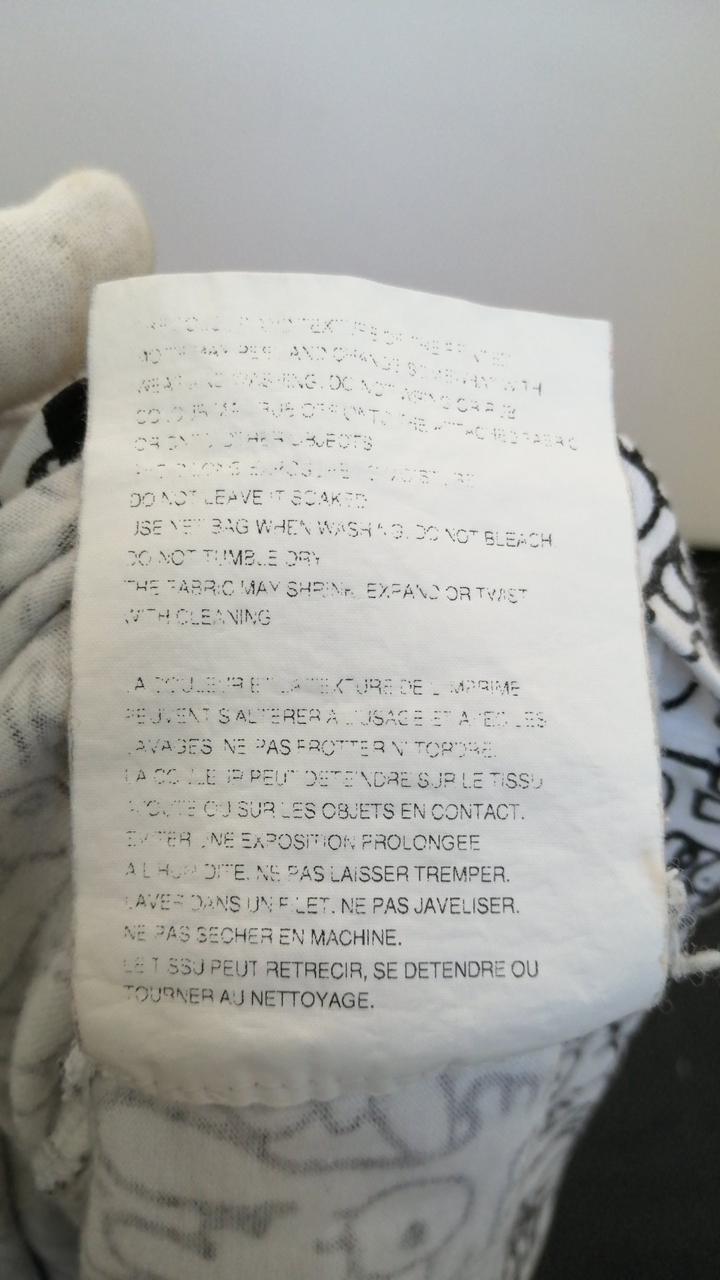 TEXTURE OF THE PRINTED
MOTIF MAY PEEL AND CHANGE SOMEWHAT WITH
WEAR AND WASHING. DO NOT WRING OR RUB
COLOUR MAY RUB OFF ONTO THE ATTACHED FABRIC
OR ONTO OTHER OBJECTS
EXPOSURE MOISTURE
DO NOT LEAVE IT SOAKED
USE NET BAG WHEN WASHING. DO NOT BLEACH
DO NOT TUMBLE DRY
THE FABRIC MAY SHRINK, EXPAND OR TWIST
WITH CLEANING
LA COULEUR ET LA TEXTURE DE L'IMPRIME
PEUVENT S'ALTERER A L'USAGE ET AVEC LES
LAVAGES. NE PAS FROTTER NI TORDRE.
LA COULEUR PEUT DETEINDRE SUR LE TISSU
AJOUTE OU SUR LES OBJETS EN CONTACT.
EVITER UNE EXPOSITION PROLONGEE
A L'HUMIDITE. NE PAS LAISSER TREMPER.
LAVER DANS UN FILET. NE PAS JAVELISER.
NE PAS SECHER EN MACHINE.
LE TISSU PEUT RETRECIR, SE DETENDRE OU
TOURNER AU NETTOYAGE.